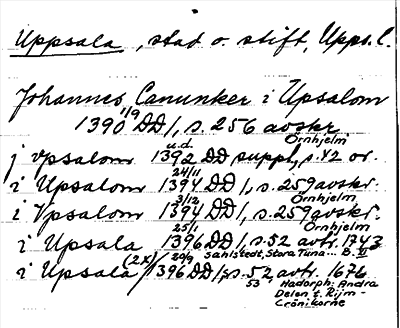 Uppsala, stad o. stift, Upps. l.
Johannes Canunker i Upsalom
1390 11/9 DD 1, s. 256 avskr. Örnhjelm
j vpsalom 1392 u.d. DD suppl, s. 42 or.
i Upsalom 1394 24/11 DD 1, s. 259 avskr. Örnhjelm
i Vpsalom 1394 3/12 DD 1, s. 259 avskr. Örnhjelm
i Upsala 1396 25/1 DD 1, s. 52 avtr. 1743 Sahlstedt, Stora Tuna... B. II
i Upsala (2x) 1396 29/9 DD 1, s. 52 avtr. 1676
53 Hadorph: Andra
Delen t. Rijm-
Crönikorne